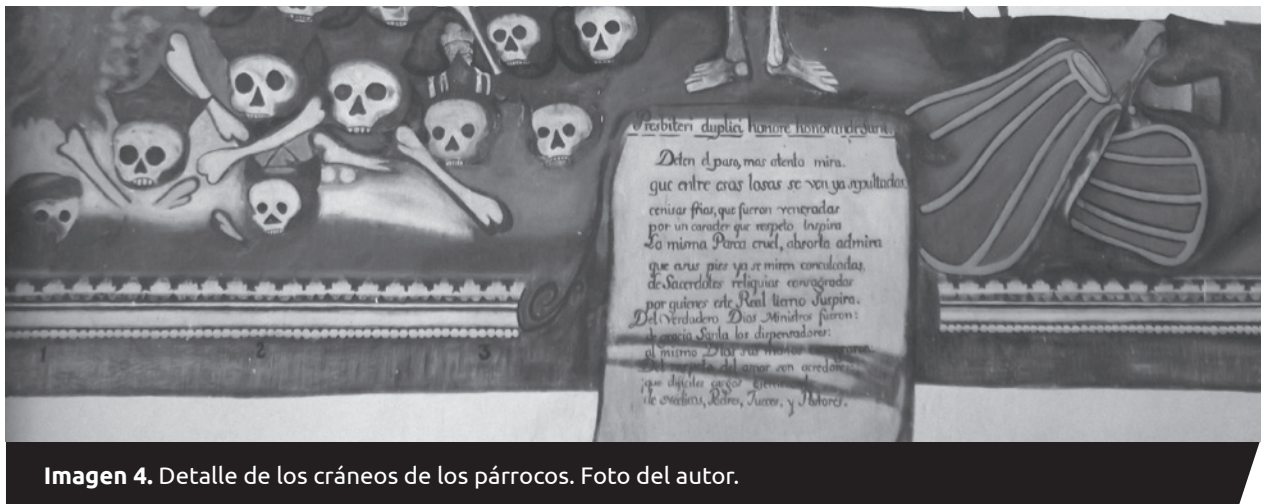 Presbiteri duplici honore honorandi sunt.
Deten el paso, mas atento mira.
que entre esas losas se ven ya sepultadas,
cenisas frias, que fueron veneradas
por un caracter que respeto Inspira
La misma Parca cruel, absorta admira
que asus pies ya se miren conculcadas,
de Sacerdotes reliquias consagradas
por quienes este Real tierno suspira.
Del Verdadero Dios Ministros fueron:
de gracia Santa los dispensadores:
al mismo Dios sus manos
Del respeto del amor son acredores:
que dificiles cargos
de Medicos, Padres, Jueces, y Pastores.
1 2 3
Imagen 4. Detalle de los cráneos de los párrocos. Foto del autor.